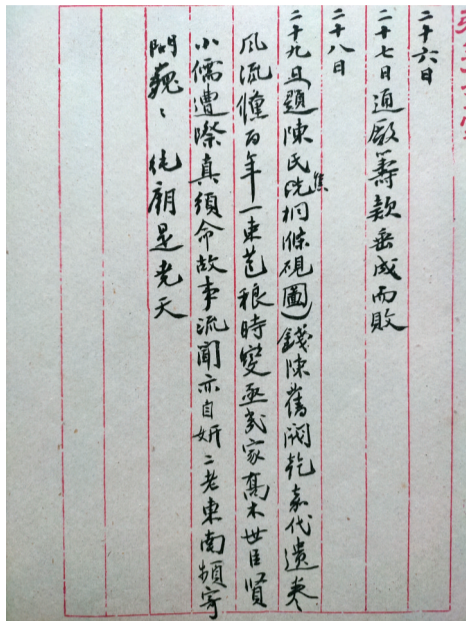 二十六日
二十七日通啟籌款垂成而敗
二十八日
二十九日題陳氏洗蕉桐滌硯圖錢陳舊閥乾嘉代遺卷
風流僅百年一束苞稂時變亟幾家喬木世臣賢
小儒遭際真須命故事流聞亦自妍二老東南頻寄
問巍〻純廟是堯天